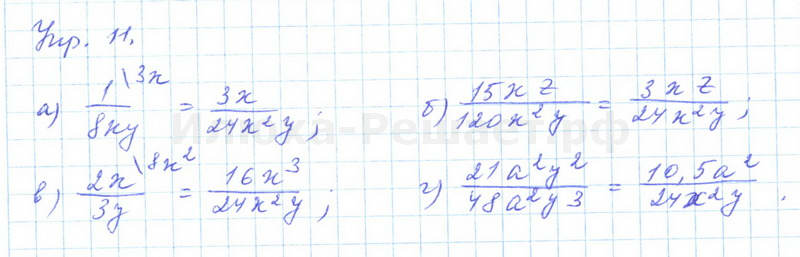 Упр. 11.
а) 1\3x/8xy = 3x/24x²y; б) 15xz/120x²y = 3xz/24x²y;
в) 2x\8x²/3y = 16x³/24x²y; г) 21a²y²/48a²y3 = 10,5a²/24x²y.
Илюха-Решает.рф